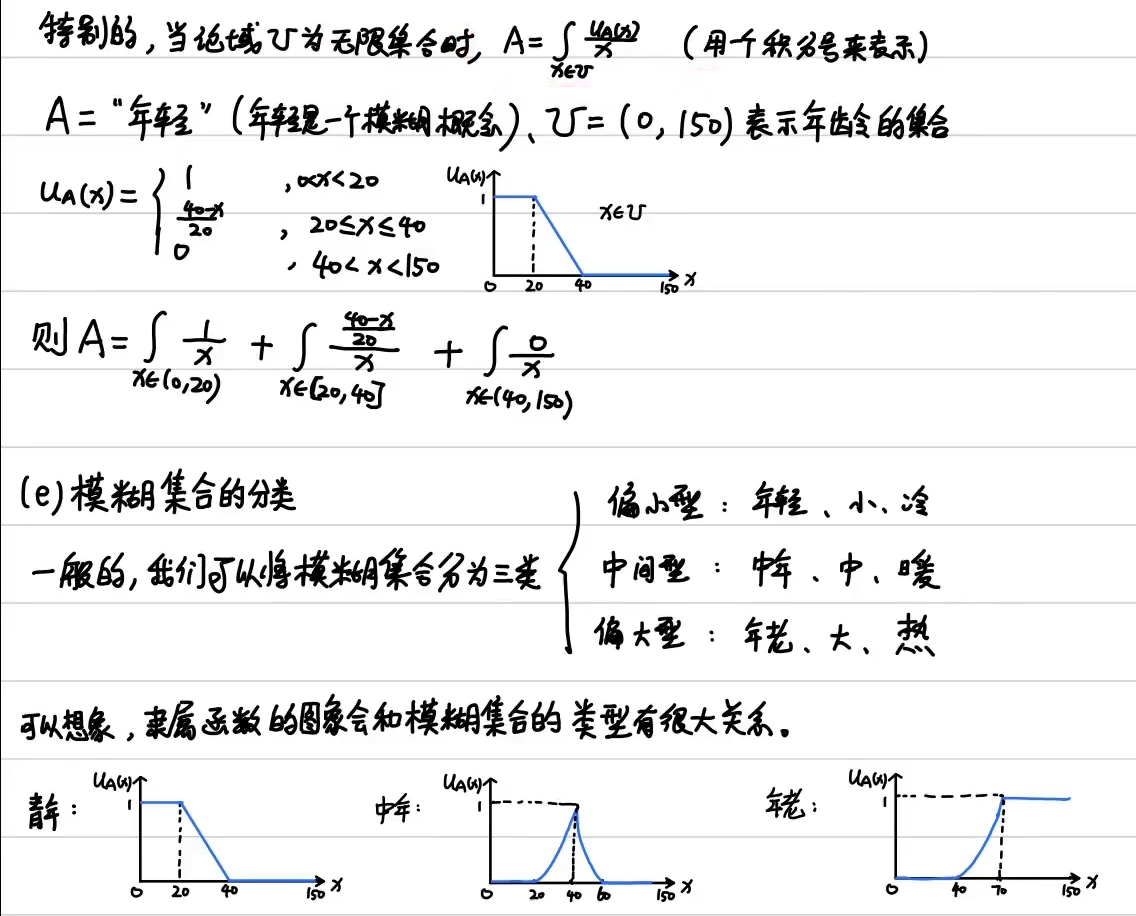 特别的,当论域U为无限集合时, A=∫_{x∈U} u_A(x)/x (用个积分号来表示)
A="年轻"(年轻是一个模糊概念)、U=(0,150)表示年龄的集合
u_A(x)= { 1 , 0<x<20
(40-x)/20 , 20≤x≤40
0 , 40<x<150
u_A(x) 1 0 20 40 150 x x∈U
则 A= ∫_{x∈(0,20)} 1/x + ∫_{x∈[20,40]} ((40-x)/20)/x + ∫_{x∈(40,150)} 0/x
(e)模糊集合的分类
一般的,我们可以将模糊集合分为三类
偏小型:年轻、小、冷
中间型:中年、中、暖
偏大型:年老、大、热
可以想象,隶属函数的图象会和模糊集合的类型有很大关系。
青年: u_A(x) 1 0 20 40 150 x
中年: u_A(x) 1 0 20 40 60 150 x
年老: u_A(x) 1 0 40 70 150 x